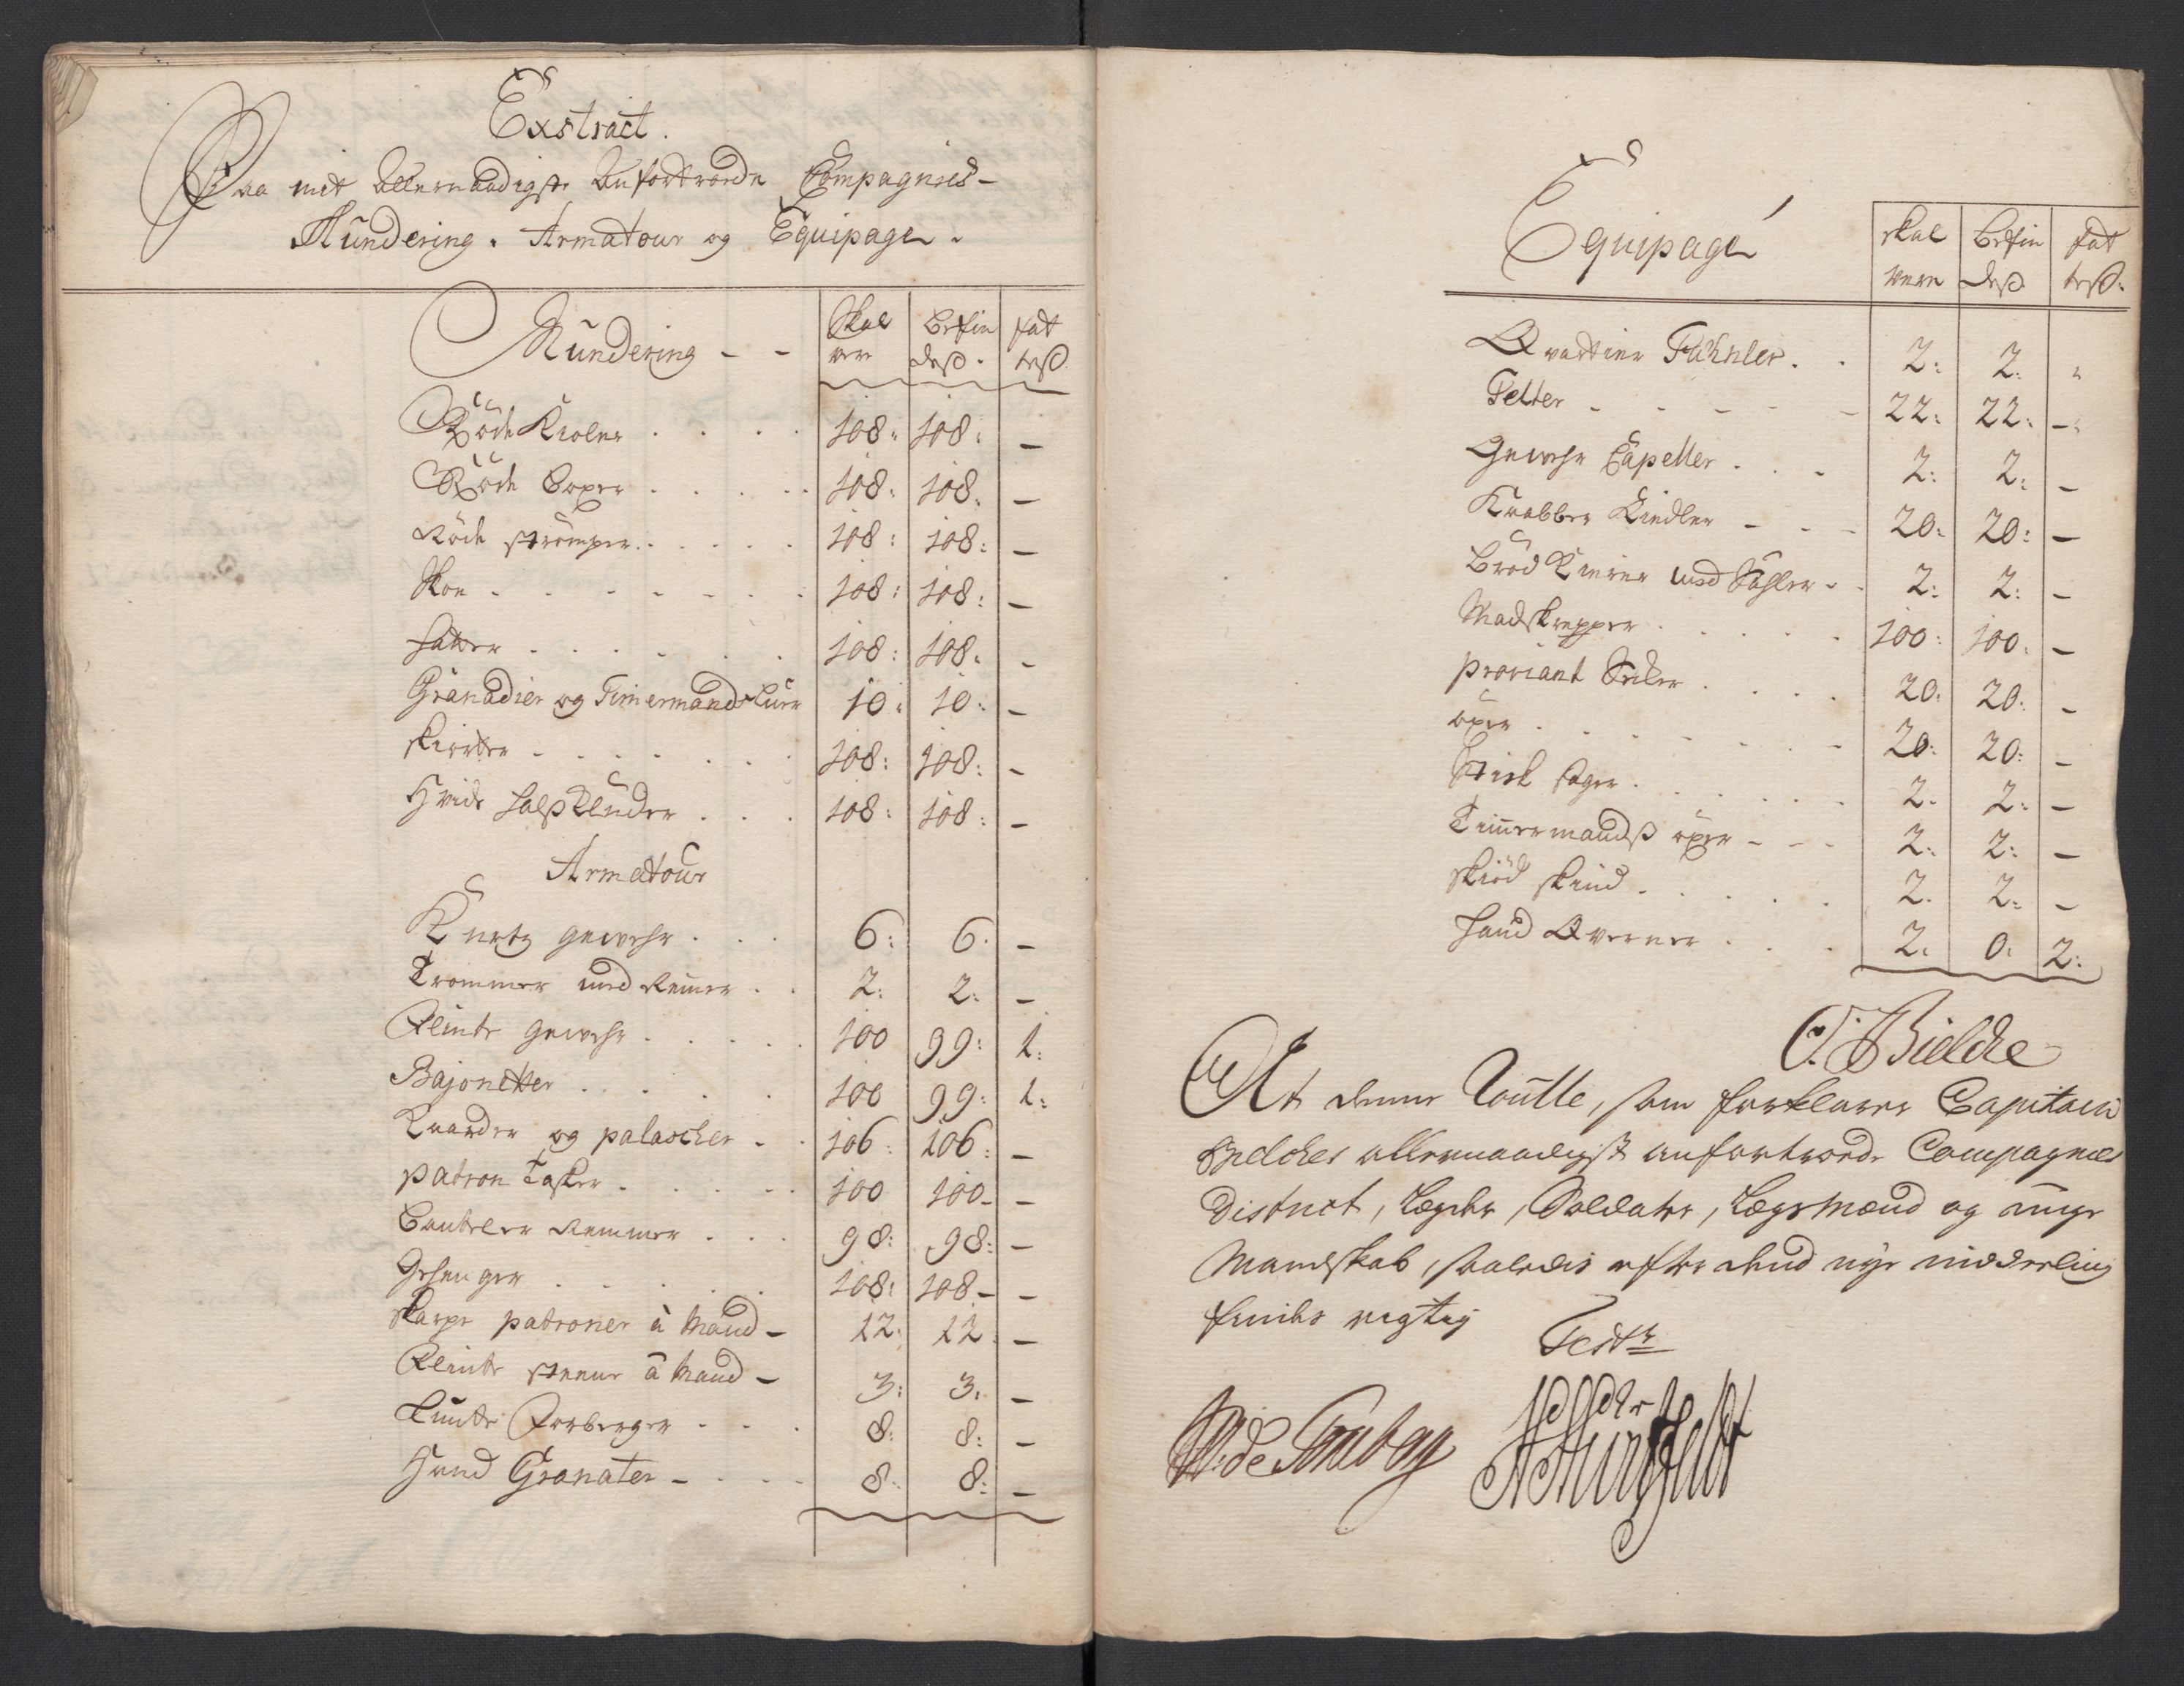 Exstract.
Paa mit allernaadigste anfortroede Compagnies-
Mundering. Armatour og Equipage.
Mundering - - Skal vere befindeß. fatteß.
Røde Kioler . . . . 108: 108: -
Røde boxer . . . . . 108: 108. -
Røde strømper . . . . . 108: 108: -
Skoe - - - - - - - 108: 108: -
Hatter - . . - . . 108: 108. -
Granadier og Timermands huer 10: 10: -
skiorter - . . - . . . 108: 108: -
Hvide halßkluder . . . 108: 108: -
Armatour
Kurtz gewehr . . . 6: 6. -
Trommer med Remer . . 2: 2: -
Flinte gewehr . . . . . 100 99: 1:
Bajonetter . . . . . 100 99: 1:
Kaarder og palascher - . 106: 106: -
patron Tasker . . . . . 100 100- -
Banteleer Remmer . . . 98: 98: -
Gehenger . . . . . 108: 108- -
skarpe patroner â Mand - 12: 12. -
Flinte steene â Mand - 3: 3. -
Lunte Forberger - - . 8: 8: -
Hand Granater - . . . 8: 8: -
Equipage skal were befindeß fatteß.
Qvarteer Fahnler . . 2: 2. "
Telter - - - - - 22: 22: -"
Gewehr Capeller . . - 2: 2: -
Knabber Kiedler - - - 20: 20: -
Brød Kierer med Søhler - . 2: 2: -
Madskrepper . . . . . 100: 100. -
proviant Seker . . . . 20. 20: -
øxer . . . . . . - 20: 20: -
Stick sager . . . . . . 2. 2: -
Timmermandß øxer - - - 2: 2: -
skiød skind . . . . . 2. 2: -
Hand Qverner . . . 2. 0. 2:
O: Bielche
At denne Roulle, som forklarer Capitain
Bielches allernaadigst anfortroede Compagnies
District, Legder, Soldater, Legsmænd og unge
Mandskab, saaledes efter dend nye inddeeling
findes rigtig
Test: